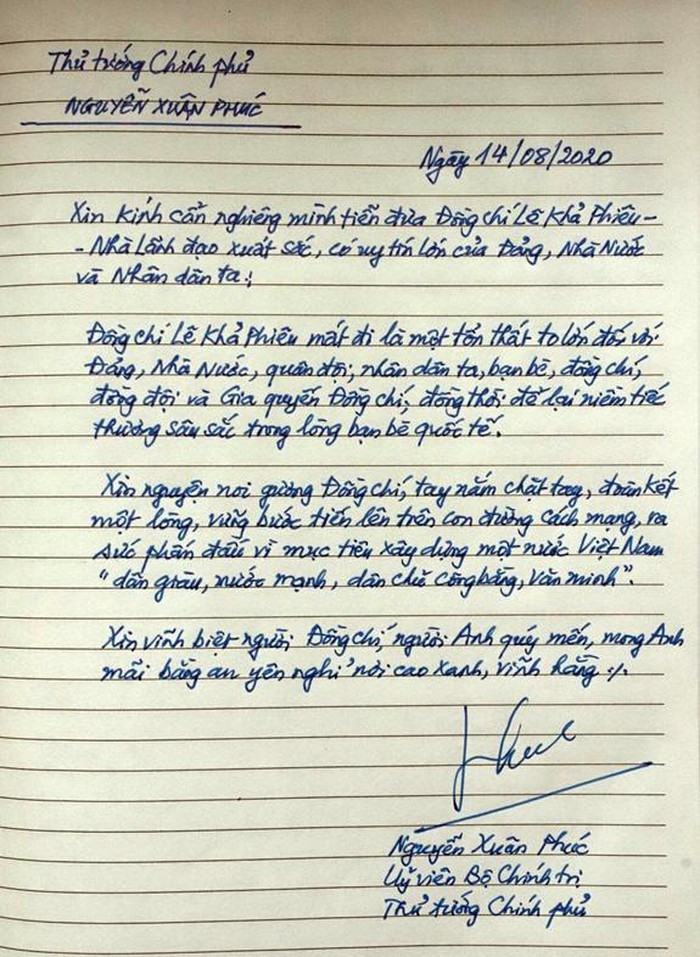 Thủ tướng Chính phủ
NGUYỄN XUÂN PHÚC
Ngày 14/08/2020
Xin kính cẩn nghiêng mình tiễn đưa Đồng chí Lê Khả Phiêu -
- Nhà Lãnh đạo xuất sắc, có uy tín lớn của Đảng, Nhà Nước
và Nhân dân ta;
Đồng chí Lê Khả Phiêu mất đi là một tổn thất to lớn đối với
Đảng, Nhà Nước, quân đội, nhân dân ta, bạn bè, đồng chí,
đồng đội và Gia quyến Đồng chí; đồng thời để lại niềm tiếc
thương sâu sắc trong lòng bạn bè quốc tế.
Xin nguyện noi gương Đồng chí, tay nắm chặt tay, đoàn kết
một lòng, vững bước tiến lên trên con đường cách mạng, ra
sức phấn đấu vì mục tiêu xây dựng một nước Việt Nam
"dân giàu, nước mạnh, dân chủ công bằng, văn minh".
Xin vĩnh biệt người Đồng chí, người Anh quý mến, mong Anh
mãi bằng an yên nghỉ nơi cao xanh, vĩnh hằng ./.
Nguyễn Xuân Phúc
Uỷ viên Bộ Chính trị
Thủ tướng Chính phủ